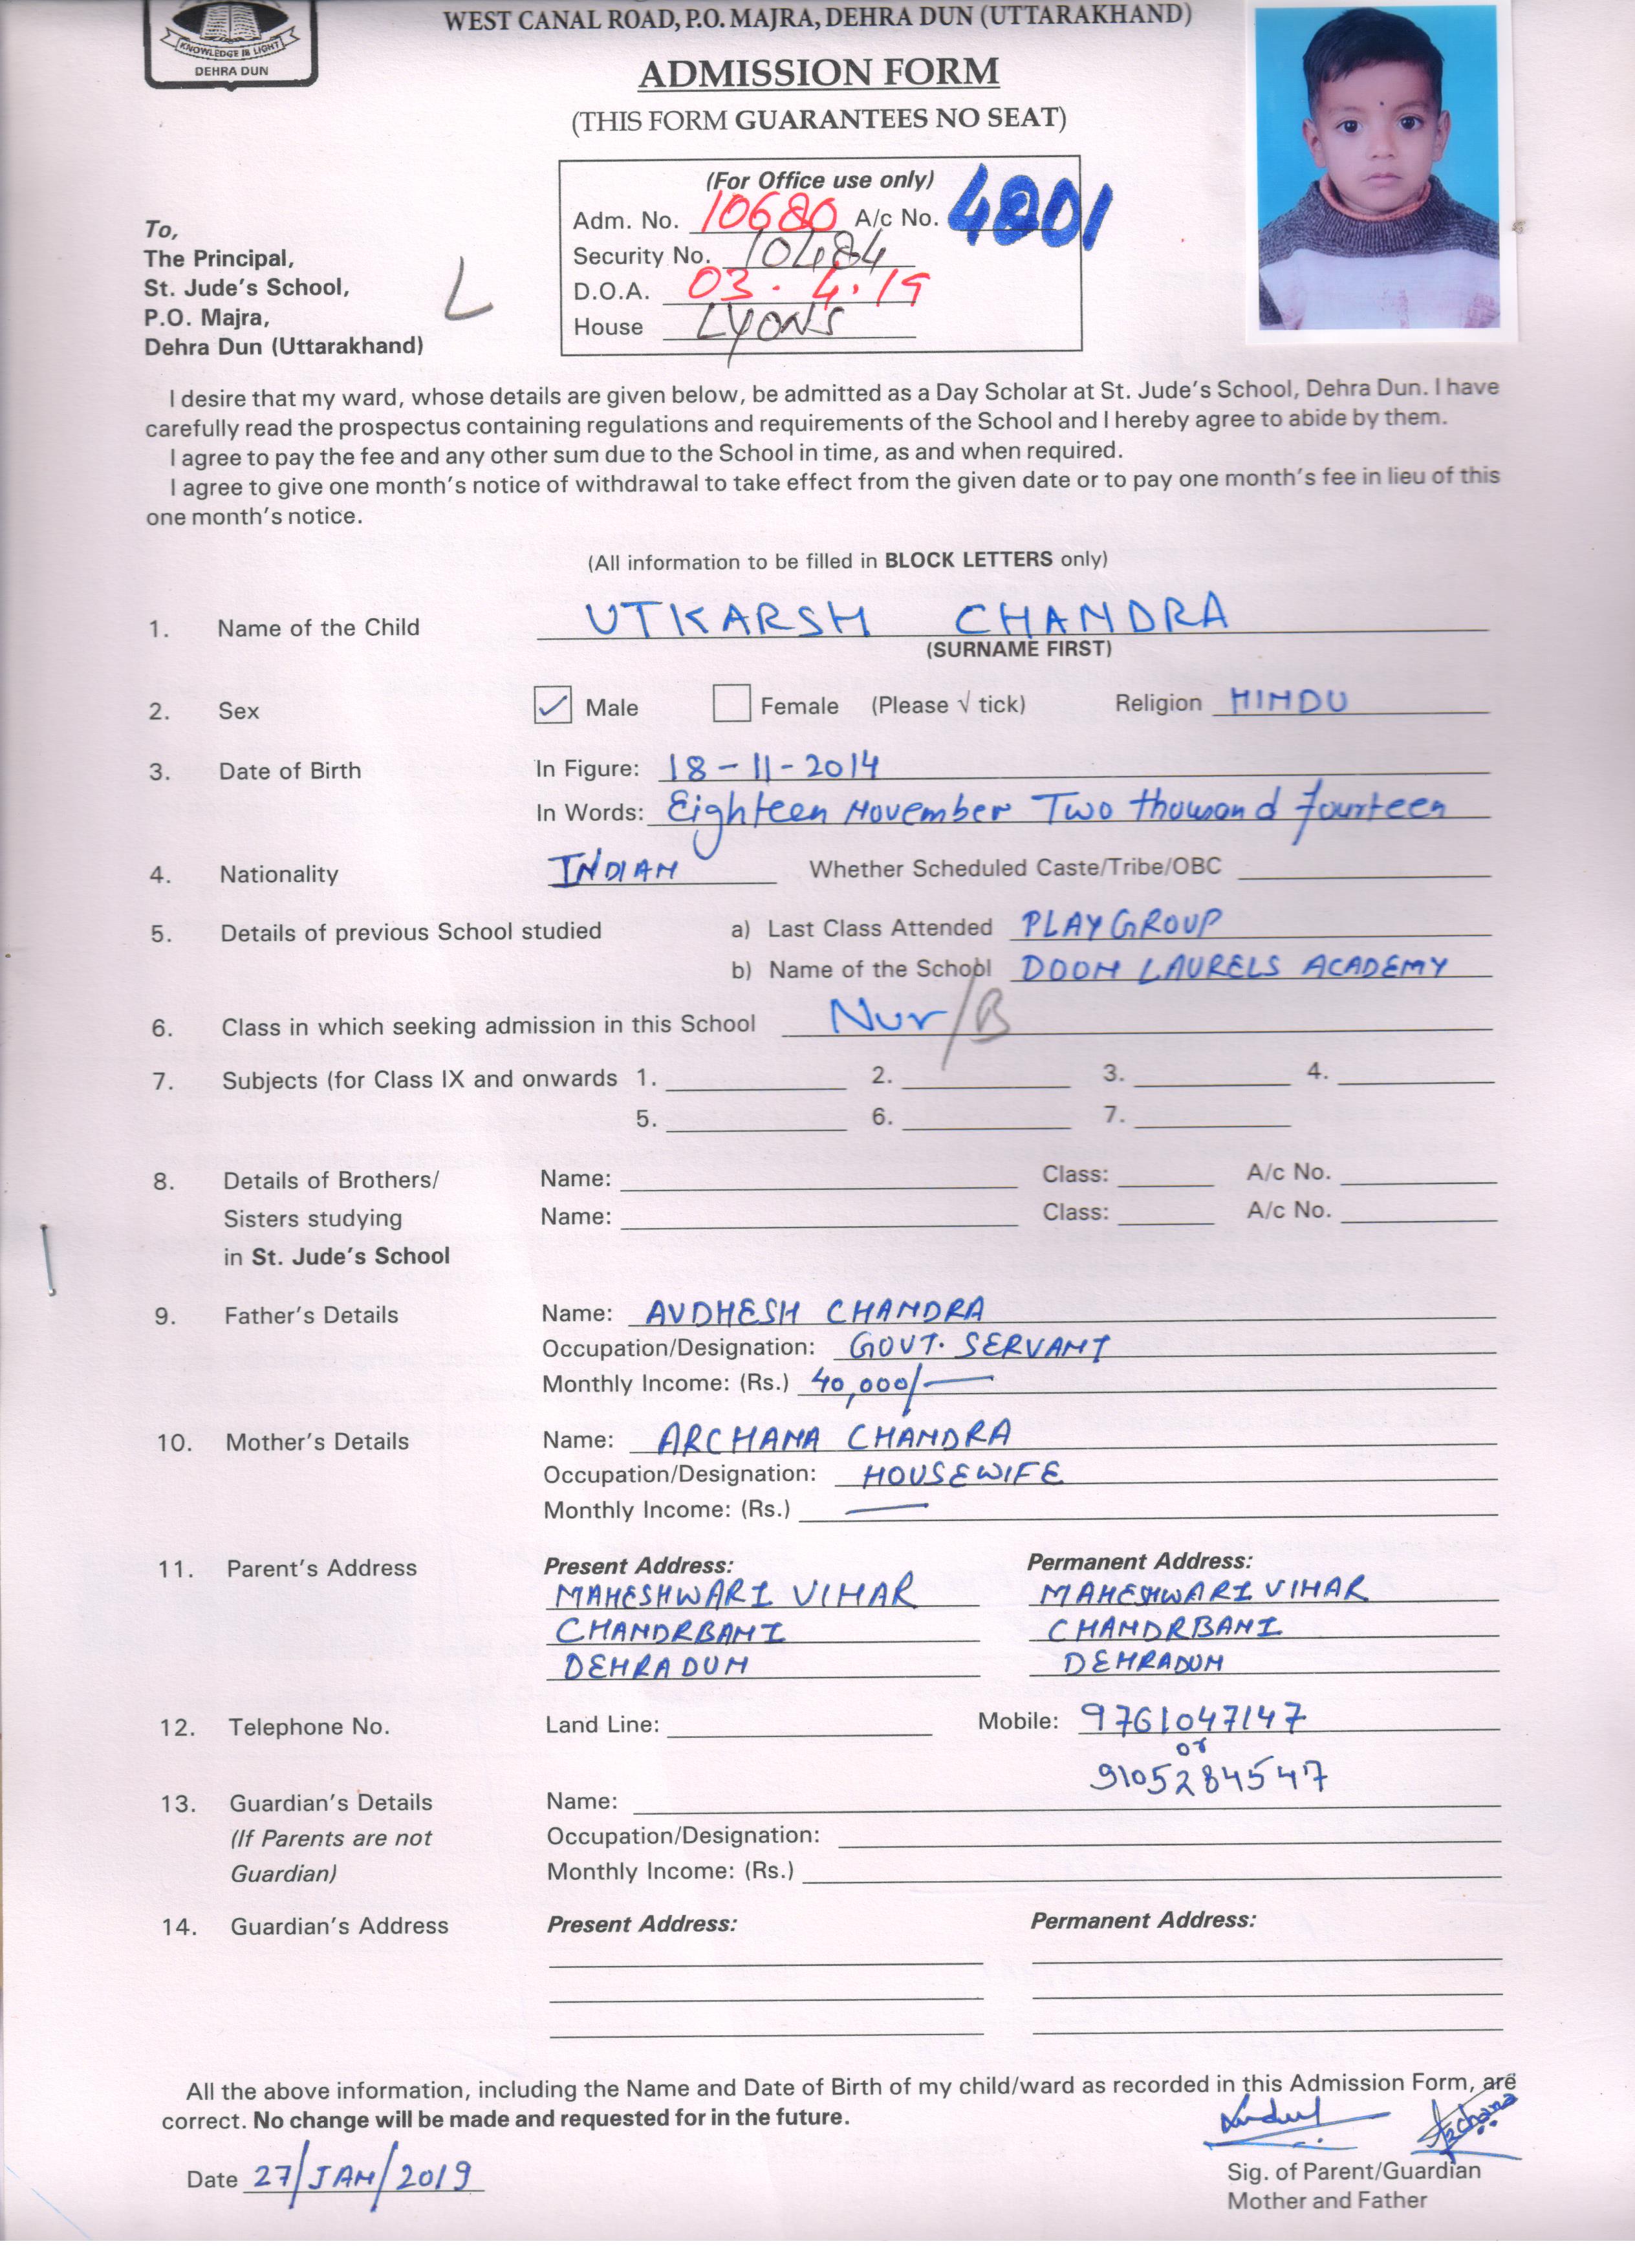 KNOWLEDGE IS LIGHT
DEHRA DUN
WEST CANAL ROAD, P.O. MAJRA, DEHRA DUN (UTTARAKHAND)
ADMISSION FORM
(THIS FORM GUARANTEES NO SEAT)
(For Office use only)
Adm. No. 10680 A/c No. 4801
Security No. 10484
D.O.A. 03.4.19
House LYONS
To,
The Principal,
St. Jude's School,
P.O. Majra,
Dehra Dun (Uttarakhand)
L
I desire that my ward, whose details are given below, be admitted as a Day Scholar at St. Jude's School, Dehra Dun. I have
carefully read the prospectus containing regulations and requirements of the School and I hereby agree to abide by them.
I agree to pay the fee and any other sum due to the School in time, as and when required.
I agree to give one month's notice of withdrawal to take effect from the given date or to pay one month's fee in lieu of this
one month's notice.
(All information to be filled in BLOCK LETTERS only)
1. Name of the Child UTKARSH CHANDRA
(SURNAME FIRST)
2. Sex ✓ Male Female (Please √ tick) Religion HINDU
3. Date of Birth In Figure: 18-11-2014
In Words: Eighteen November Two thousand fourteen
4. Nationality INDIAN Whether Scheduled Caste/Tribe/OBC
5. Details of previous School studied a) Last Class Attended PLAY GROUP
b) Name of the School DOON LAURELS ACADEMY
6. Class in which seeking admission in this School Nur/B
7. Subjects (for Class IX and onwards 1. 2. 3. 4.
5. 6. 7.
8. Details of Brothers/ Name: Class: A/c No.
Sisters studying Name: Class: A/c No.
in St. Jude's School
9. Father's Details Name: AVDHESH CHANDRA
Occupation/Designation: GOVT. SERVANT
Monthly Income: (Rs.) 40,000/-
10. Mother's Details Name: ARCHANA CHANDRA
Occupation/Designation: HOUSEWIFE
Monthly Income: (Rs.) —
11. Parent's Address Present Address: Permanent Address:
MAHESHWARI VIHAR MAHESHWARI VIHAR
CHANDRBANI CHANDRBANI
DEHRADUN DEHRADUN
12. Telephone No. Land Line: Mobile: 9761047147
or
9105284547
13. Guardian's Details Name:
(If Parents are not Occupation/Designation:
Guardian) Monthly Income: (Rs.)
14. Guardian's Address Present Address: Permanent Address:
All the above information, including the Name and Date of Birth of my child/ward as recorded in this Admission Form, are
correct. No change will be made and requested for in the future.
Archana
Date 27/JAN/2019
Sig. of Parent/Guardian
Mother and Father